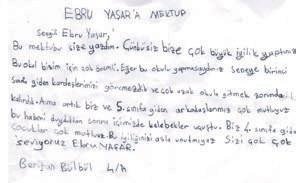 EBRU YAŞAR'A MEKTUP
Sevgili Ebru Yaşar,
Bu mektubu size yazdım. Çünkü siz bize çok büyük iyilik yaptınız
Bu okul bizim için çok önemli. Eğer bu okulu yapmasaydınız seneye birinci
sınıfa giden kardeşlerimizi görmezdik ve çok uzak okula gitmek zorunda
kalırdık. Ama artık biz ve 5. sınıfa giden arkadaşlarımız çok mutluyuz
bu haberi duyduktan sonra içimizde kelebekler uçuştu. Biz 4. sınıfa giden
çocuklar çok mutluyuz. Bu iyiliğinizi asla unutmayız Sizi çok çok
seviyoruz EBRU YAŞAR.
Berizan Bülbül 4/A